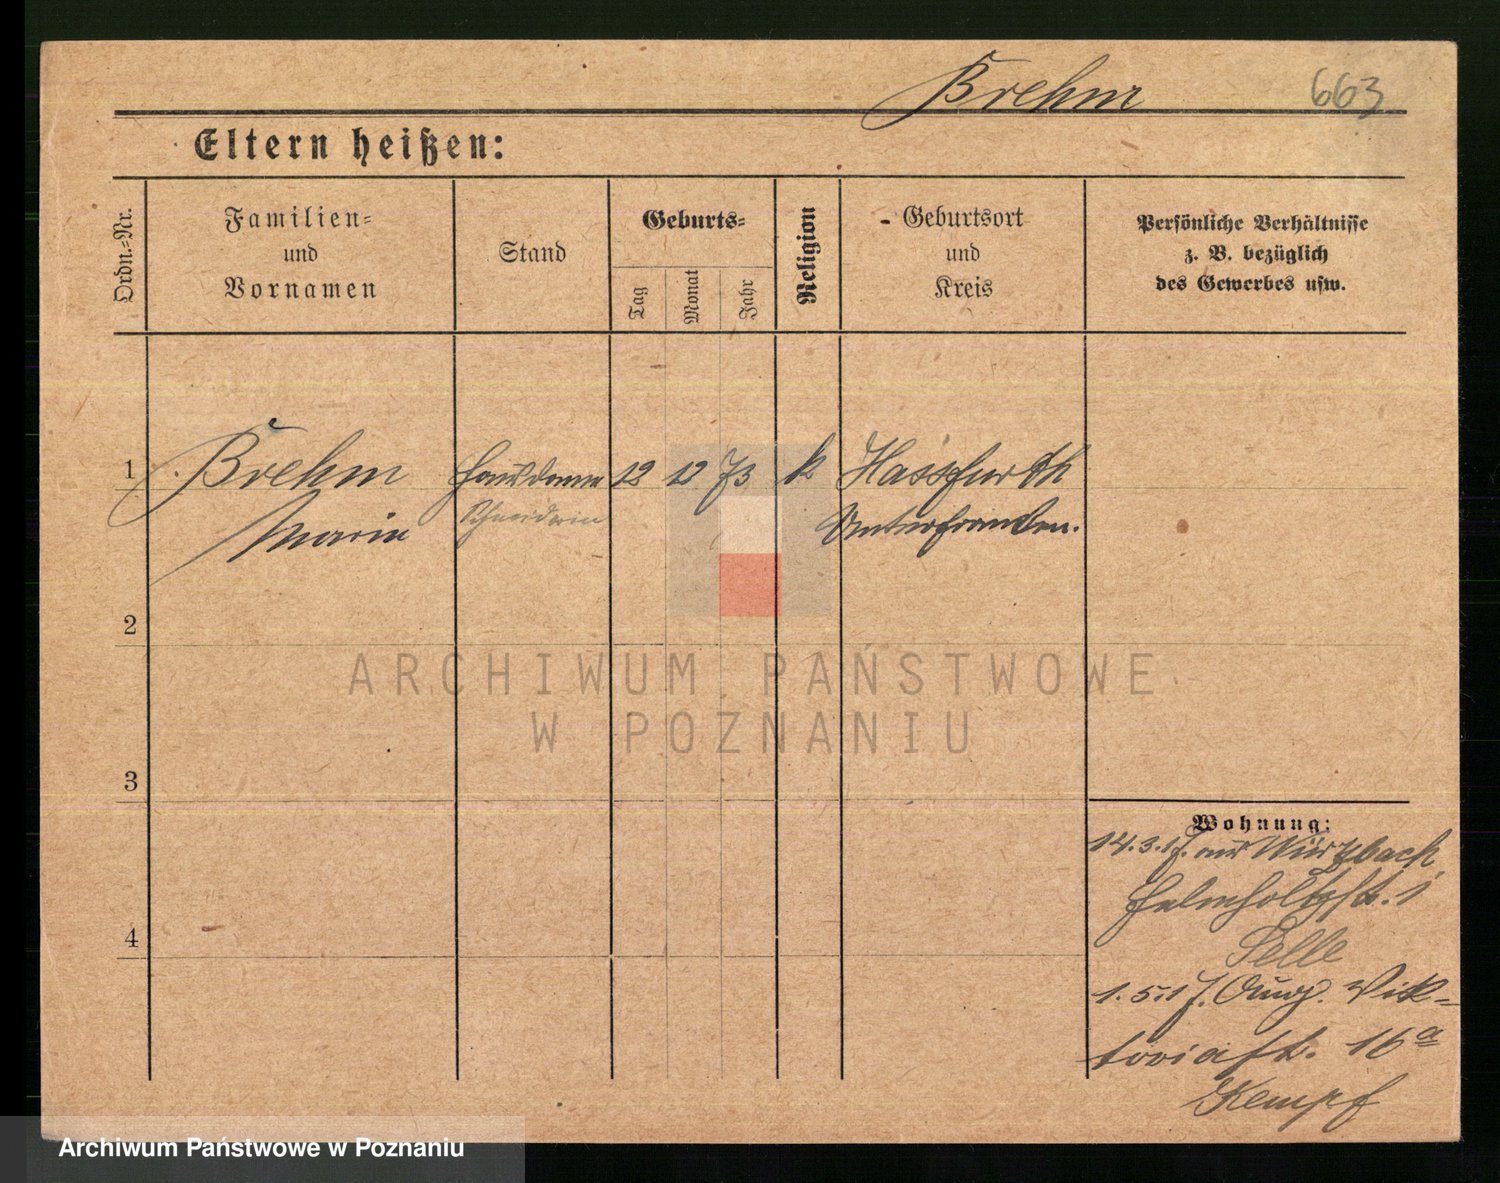 Brehm 663
Eltern heißen:
Ordn.=Nr.
Familien=
und
Vornamen
Stand
Geburts=
Tag
Monat
Jahr
Religion
Geburtsort
und
Kreis
Persönliche Verhältnisse
z. B. bezüglich
des Gewerbes usw.
1 Brehm Hausdame 12 12 73 k Hassfurth
Marie Schneiderin Unterfranken.
2
3
4
Wohnung:
14.3.17. aus Würzbach
Helmholtzst. 1
Selle
1.5.17. Vik=
toriast. 16a
Kempf
ARCHIWUM PAŃSTWOWE
W POZNANIU
Archiwum Państwowe w Poznaniu